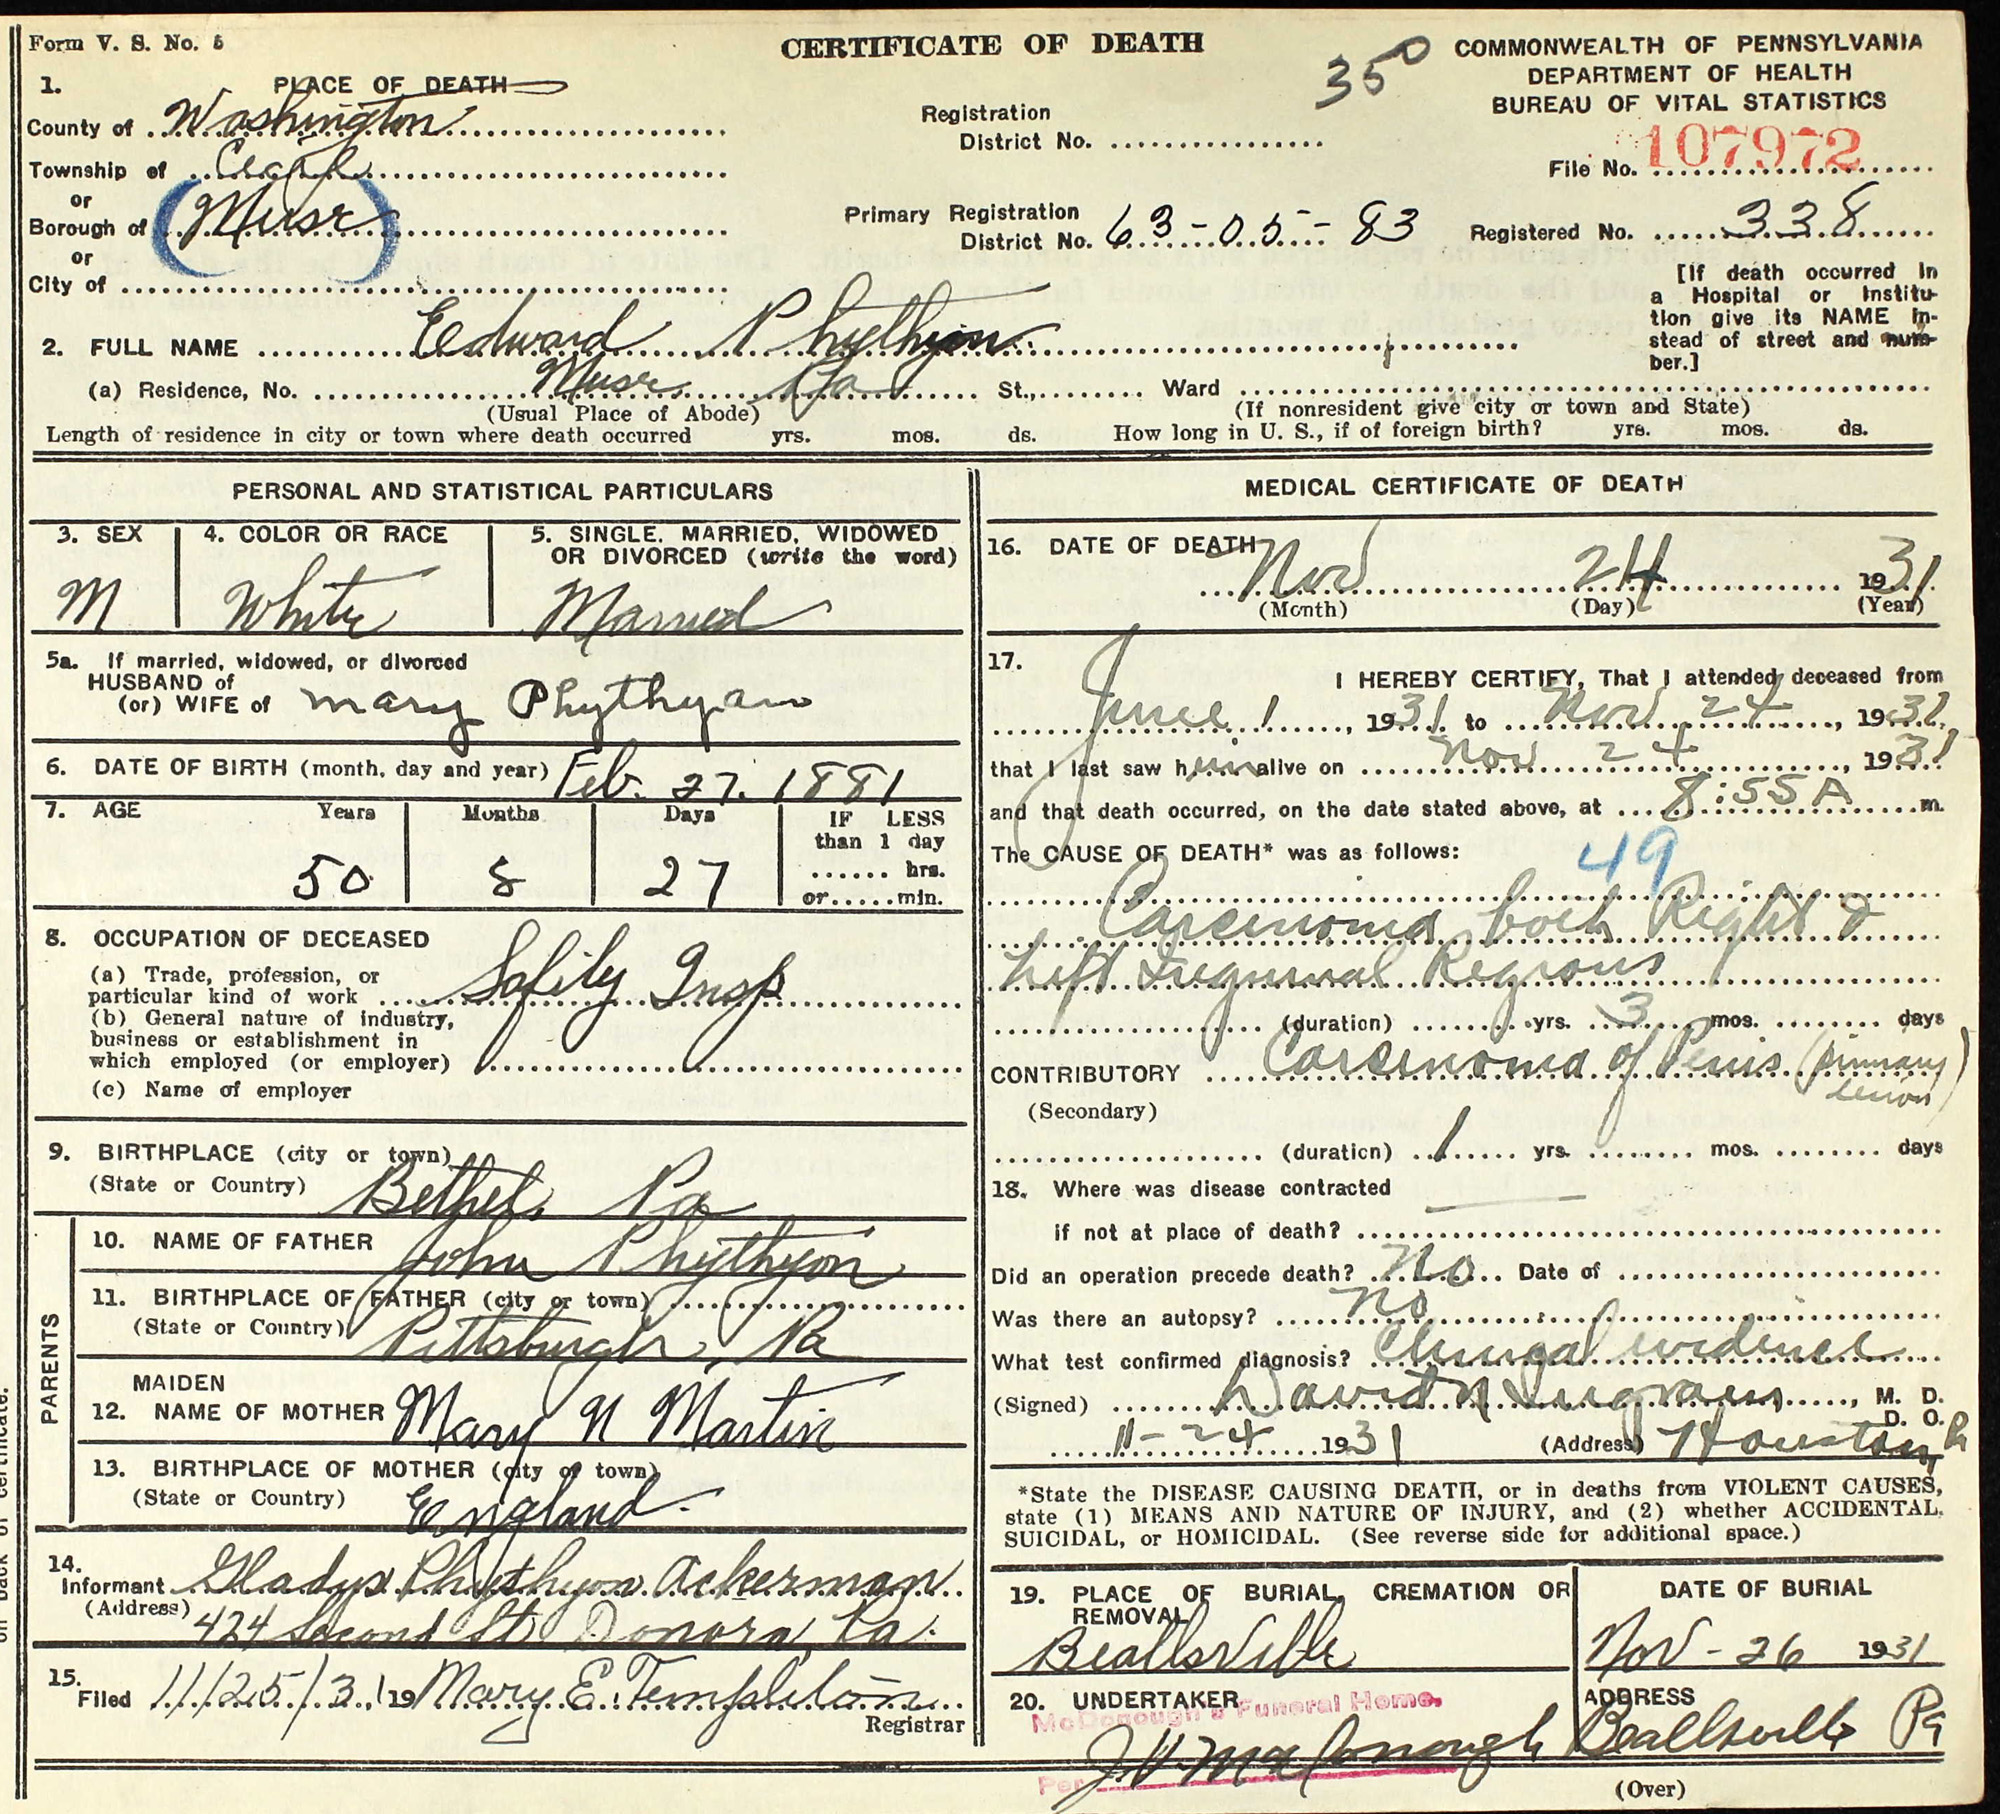 Form V. S. No. 5
CERTIFICATE OF DEATH
350
COMMONWEALTH OF PENNSYLVANIA
DEPARTMENT OF HEALTH
BUREAU OF VITAL STATISTICS
1. PLACE OF DEATH
County of Washington
Township of Cecil
or
Borough of Muse
or
City of
Registration
District No.
File No. 107972
Primary Registration
District No. 63-05-83
Registered No. 338
[If death occurred in
a Hospital or Institu-
tion give its NAME in-
stead of street and num-
ber.]
2. FULL NAME Edward Phythyon
(a) Residence, No. Muse Pa St., Ward
(Usual Place of Abode) (If nonresident give city or town and State)
Length of residence in city or town where death occurred yrs. mos. ds. How long in U. S., if of foreign birth? yrs. mos. ds.
PERSONAL AND STATISTICAL PARTICULARS
3. SEX 4. COLOR OR RACE 5. SINGLE, MARRIED, WIDOWED
OR DIVORCED (write the word)
M White Married
5a. If married, widowed, or divorced
HUSBAND of
(or) WIFE of Mary Phythyon
6. DATE OF BIRTH (month, day and year) Feb. 27. 1881
7. AGE Years Months Days IF LESS
than 1 day
hrs.
or min.
50 8 27
8. OCCUPATION OF DECEASED
(a) Trade, profession, or
particular kind of work Safity Insp
(b) General nature of industry,
business or establishment in
which employed (or employer)
(c) Name of employer
9. BIRTHPLACE (city or town)
(State or Country) Bethel, Pa
PARENTS
10. NAME OF FATHER John Phythyon
11. BIRTHPLACE OF FATHER (city or town)
(State or Country) Pittsburgh, Pa
MAIDEN
12. NAME OF MOTHER Mary N Martin
13. BIRTHPLACE OF MOTHER (city or town)
(State or Country) England
14.
Informant Gladys Phythyon Ackerman
(Address) 424 Second St Donora, Pa.
15.
Filed 11/25/31 19 Mary E. Templeton
Registrar
MEDICAL CERTIFICATE OF DEATH
16. DATE OF DEATH Nov 24 1931
(Month) (Day) (Year)
17.
I HEREBY CERTIFY, That I attended deceased from
June 1, 1931 to Nov 24, 1931,
that I last saw him alive on Nov 24, 1931
and that death occurred, on the date stated above, at 8:55 A m.
The CAUSE OF DEATH* was as follows:
49
Carcinoma both Right &
Left Inguinal Regions
(duration) yrs. 3 mos. days
CONTRIBUTORY Carcinoma of Penis (primary
lesion)
(Secondary)
(duration) 1 yrs. mos. days
18. Where was disease contracted
if not at place of death?
Did an operation precede death? No Date of
Was there an autopsy? No
What test confirmed diagnosis? Clinical evidence
(Signed) David N Ingram, M. D.
D. O.
11-24 1931 (Address) Houston, Pa
*State the DISEASE CAUSING DEATH, or in deaths from VIOLENT CAUSES,
state (1) MEANS AND NATURE OF INJURY, and (2) whether ACCIDENTAL,
SUICIDAL, or HOMICIDAL. (See reverse side for additional space.)
19. PLACE OF BURIAL, CREMATION OR
REMOVAL
Beallsville
DATE OF BURIAL
Nov - 26 1931
20. UNDERTAKER
McDonough's Funeral Home.
Per J. H. McDonough
ADDRESS
Beallsville Pa
(Over)